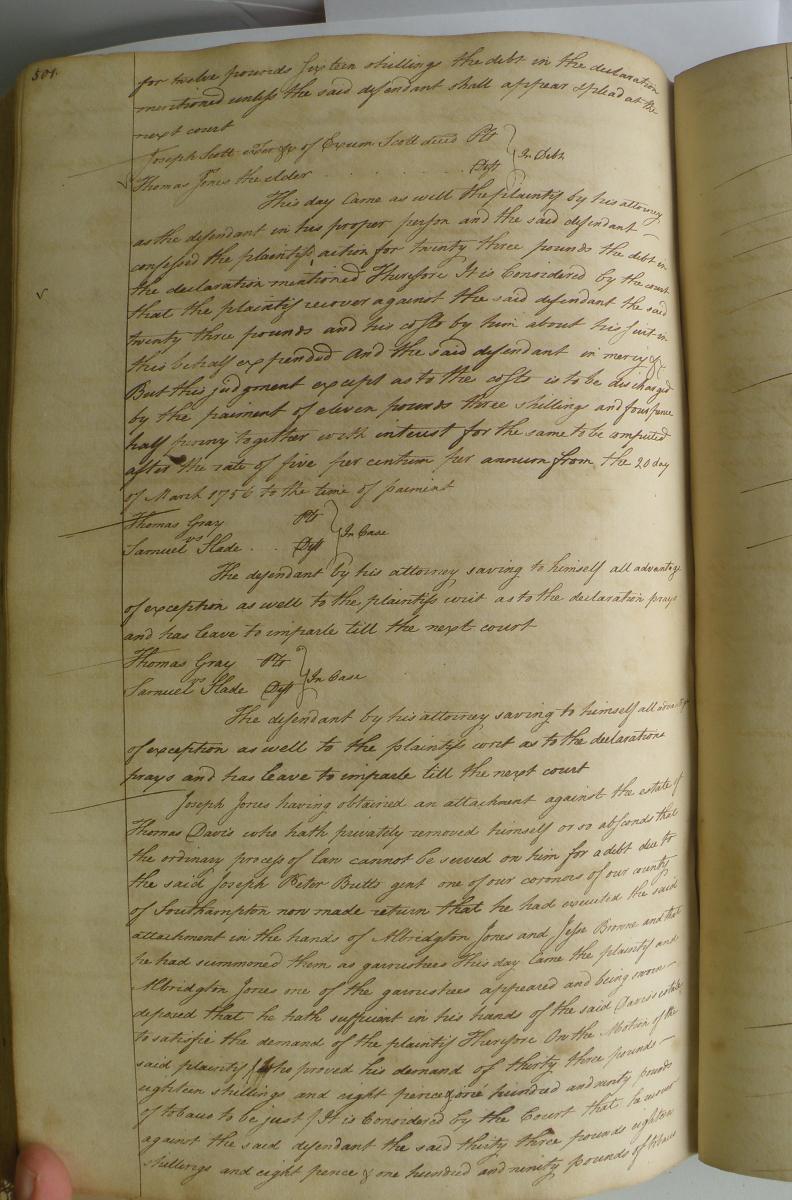 501.
for twelve pounds sixteen shillings the debt in the declaration
mentioned unless the said defendant shall appear & plead at the
next court
Joseph Scott exor &c of Exum Scott deced Plt
vs } In Debt
Thomas Jones the elder . . . . . Deft
This day Came as well the plaintif by his attorney
as the defendant in his proper person and the said defendant
confessed the plaintifs action for twenty three pounds the debt in
the declaration mentioned Therefore It is Considered by the court
that the plaintif recover against the said defendant the said
twenty three pounds and his costs by him about his suit in
this behalf expended And the said defendant in mercy &c
But this judgment except as to the costs is to be discharged
by the paiment of eleven pounds three shillings and four pence
half penny together with interest for the same to be computed
after the rate of five per centum per annum from the 20 day
of March 1756 to the time of paiment
Thomas Gray Plt
vs } In Case
Samuel Slade . . Deft
The defendant by his attorney saving to himself all advantage
of exception as well to the plaintifs writ as to the declaration prays
and has leave to imparle till the next court
Thomas Gray Plt
vs } In Case
Samuel Slade Deft
The defendant by his attorney saving to himself all advantage
of exception as well to the plaintifs writ as to the declaration
prays and has leave to imparle till the next court
Joseph Jones having obtained an attachment against the estate of
Thomas Davis who hath privately removed himself or so absconds that
the ordinary process of law cannot be served on him for a debt due to
the said Joseph Peter Butts gent one of our coroners of our county
of Southampton now made return that he had executed the said
attachment in the hands of Albridgton Jones and Jesse Browne and that
he had summoned them as garnishees This day Came the plaintif and
Albridgton Jones one of the garnishees appeared and being sworn
deposed that he hath sufficent in his hands of the said Davis's estate
to satisfie the demand of the plaintif Therefore On the Motion of the
said plaintif (who proved his demand of thirty three pounds
eighteen shillings and eight pence & one hundred and ninty pounds
of tobaco to be just) It is Considered by the Court that he recover
against the said defendant the said thirty three pounds eighteen
shillings and eight pence & one hundred and ninety pounds of tobaco